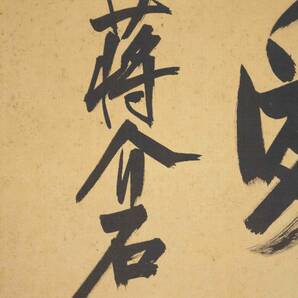 蔣介石